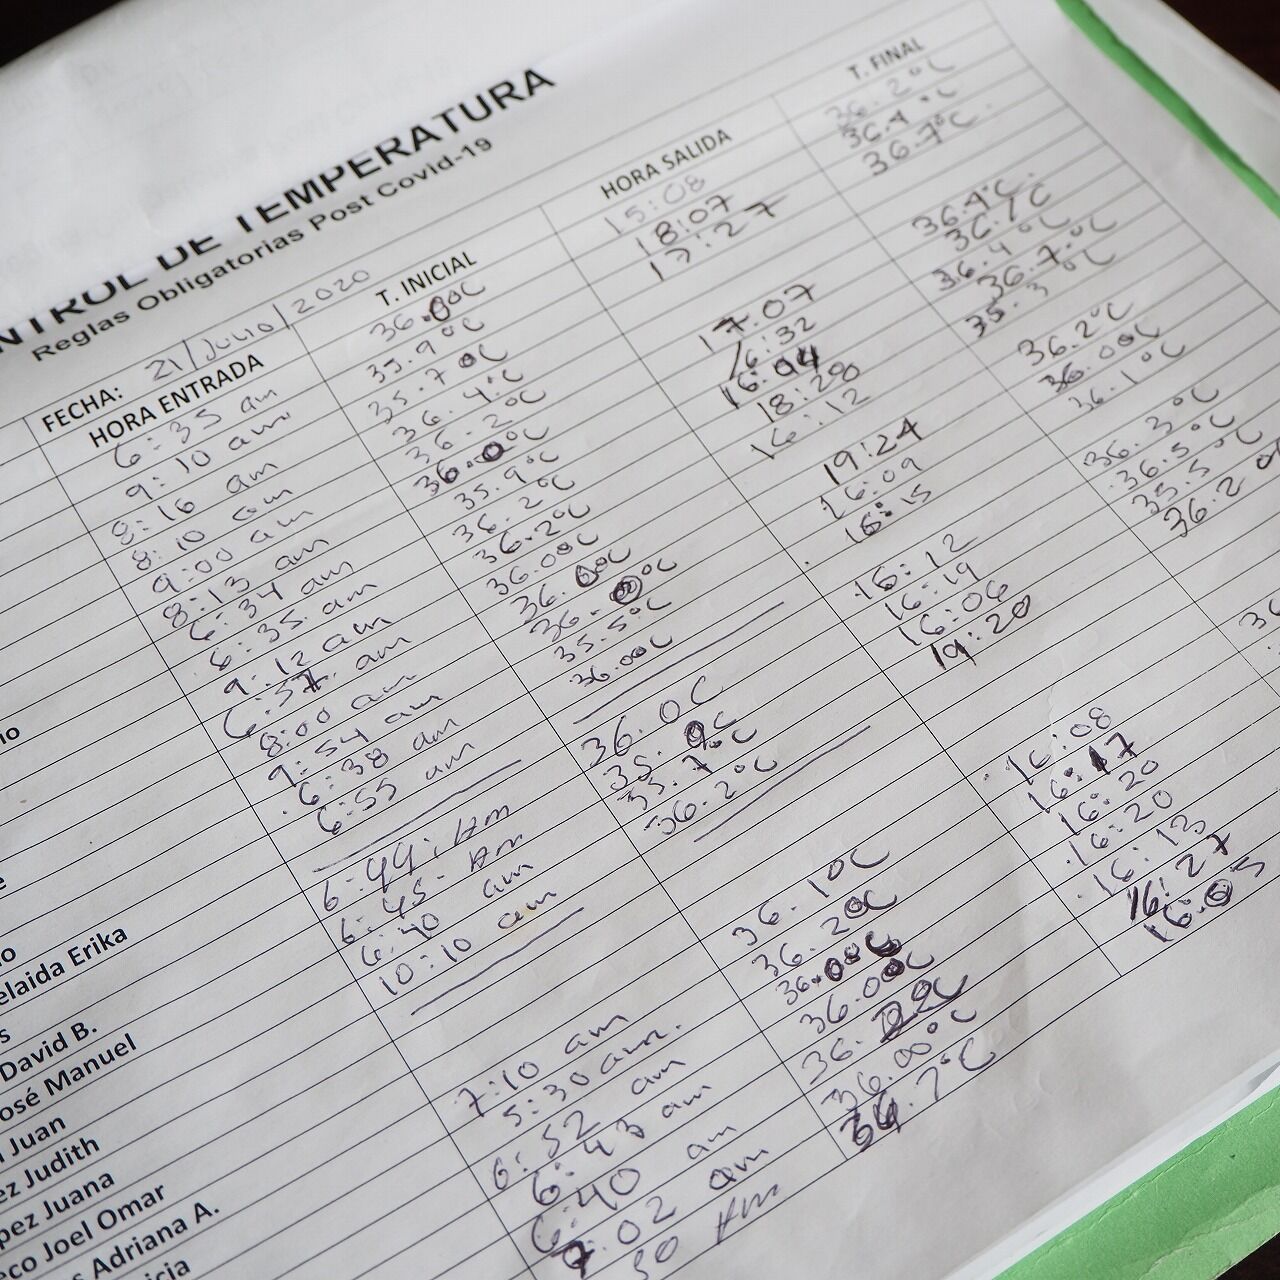 NTROL DE TEMPERATURA
Reglas Obligatorias Post Covid-19
FECHA: 21/Julio/2020
HORA ENTRADA T. INICIAL HORA SALIDA T. FINAL
6:35 am 36.0°C 15:08 36.2°C
9:10 am 35.9°C 18:07 36.4°C
8:16 am 35.7°C 17:27 36.7°C
8:10 am 36.4°C
9:00 am 36.2°C 17:07 36.4°C
8:13 am 36.0°C 16:32 36.1°C
6:34 am 35.9°C 16:04 36.4°C
6:35 am 36.2°C 18:200 36.7°C
9:12 am 36.2°C 16:12 35.3°C
6:37 am 36.0°C
8:00 am 36.0°C 19:24 36.2°C
9:54 am 36.00°C 16:09 36.00°C
6:38 am 35.5°C 16:15 36.1°C
6:55 am 36.00°C
6:44: Am 36.0C 16:12 36.3°C
6:45. Am 35.9°C 16:19 36.5°C
6:40 am 35.7°C 16:06 35.5°C
10:10 am 36.2°C 19:20 36.2°C
7:10 am 36.1°C 16:08 36
5:30 am. 36.2°C 16:17
6:52 am 36.00°C 16:20
6:43 am 36.00°C 16:20
6:40 am 16:13
7:02 am 36.00°C 16:27
30 Am 36.7°C 16:05
elaida Erika
David B.
osé Manuel
Juan
ez Judith
pez Juana
co Joel Omar
Adriana A.
icia